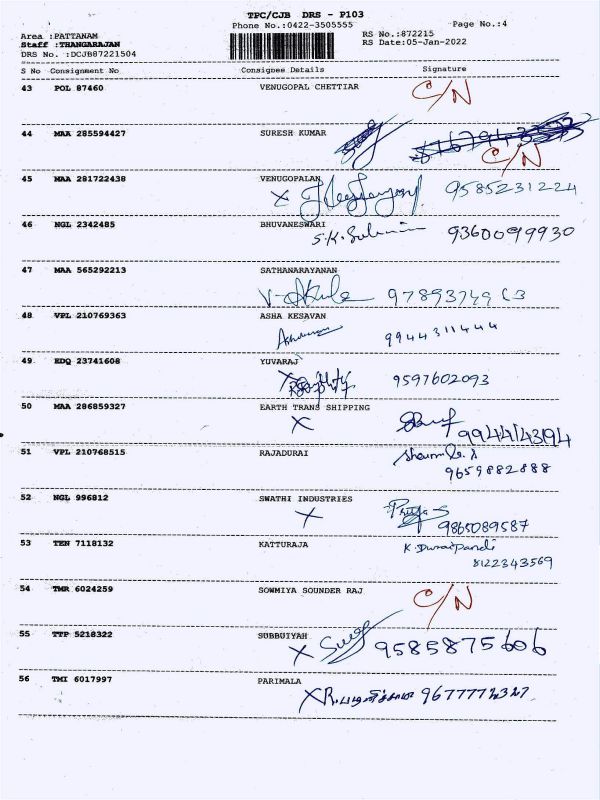 TPC/CJB DRS - P103
Phone No.:0422-3505555
Page No.:4
Area :PATTANAM
RS No.:872215
Staff :THANGARAJAN
RS Date:05-Jan-2022
DRS No. :DCJB87221504
S No Consignment No Consignee Details Signature
43 POL 87460 VENUGOPAL CHETTIAR C/N
44 MAA 285594427 SURESH KUMAR
C/N
45 MAA 281722438 VENUGOPALAN
X 9585231224
46 NGL 2342485 BHUVANESWARI
S.K. 9360099930
47 MAA 565292213 SATHANARAYANAN
48 VPL 210769363 ASHA KESAVAN
9944311444
49 EDQ 23741608 YUVARAJ
X 9597602093
50 MAA 286859327 EARTH TRANS SHIPPING
X 9944143194
51 VPL 210768515 RAJADURAI
9659882888
52 NGL 996812 SWATHI INDUSTRIES
X Priya S
9865089587
53 TEN 7118132 KATTURAJA K. Duraipandi
8122343569
54 TMR 6024259 SOWMIYA SOUNDER RAJ C/N
55 TTP 5218322 SUBBUIYAH
X 9585875606
56 TMI 6017997 PARIMALA
X 9677772327